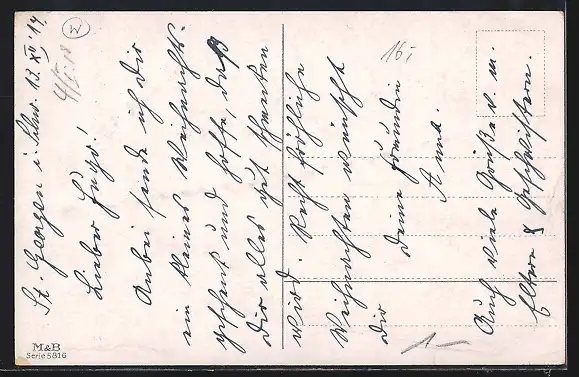 St. Georgen i. Schw. 13. XII 14.
Lieber Hugo!
Anbei sende ich Dir
ein kleines Weihnachts-
geschenk und hoffe daß
Dir alles gut schmecken
wird. Recht fröhliche
Weihnachten wünscht
Dir Deine Freundin
Anna.
Auch viele Grüße v. m.
Eltern & Geschwistern.
W
16,-
1-
M&B
Serie 5816